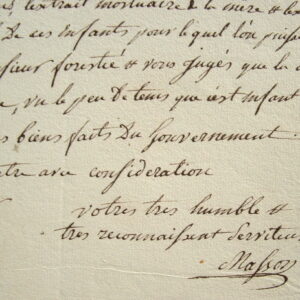 l'extrait mortuaire de la mere & les
De ces enfants pour lequel l'on puisse
sieur forestié & vous jugés que la
vu le peu de tems que c'est infant
biens faits Du Gouvernement
avec consideration
votres tres humble &
tres reconnaissent Serviteur
Masson